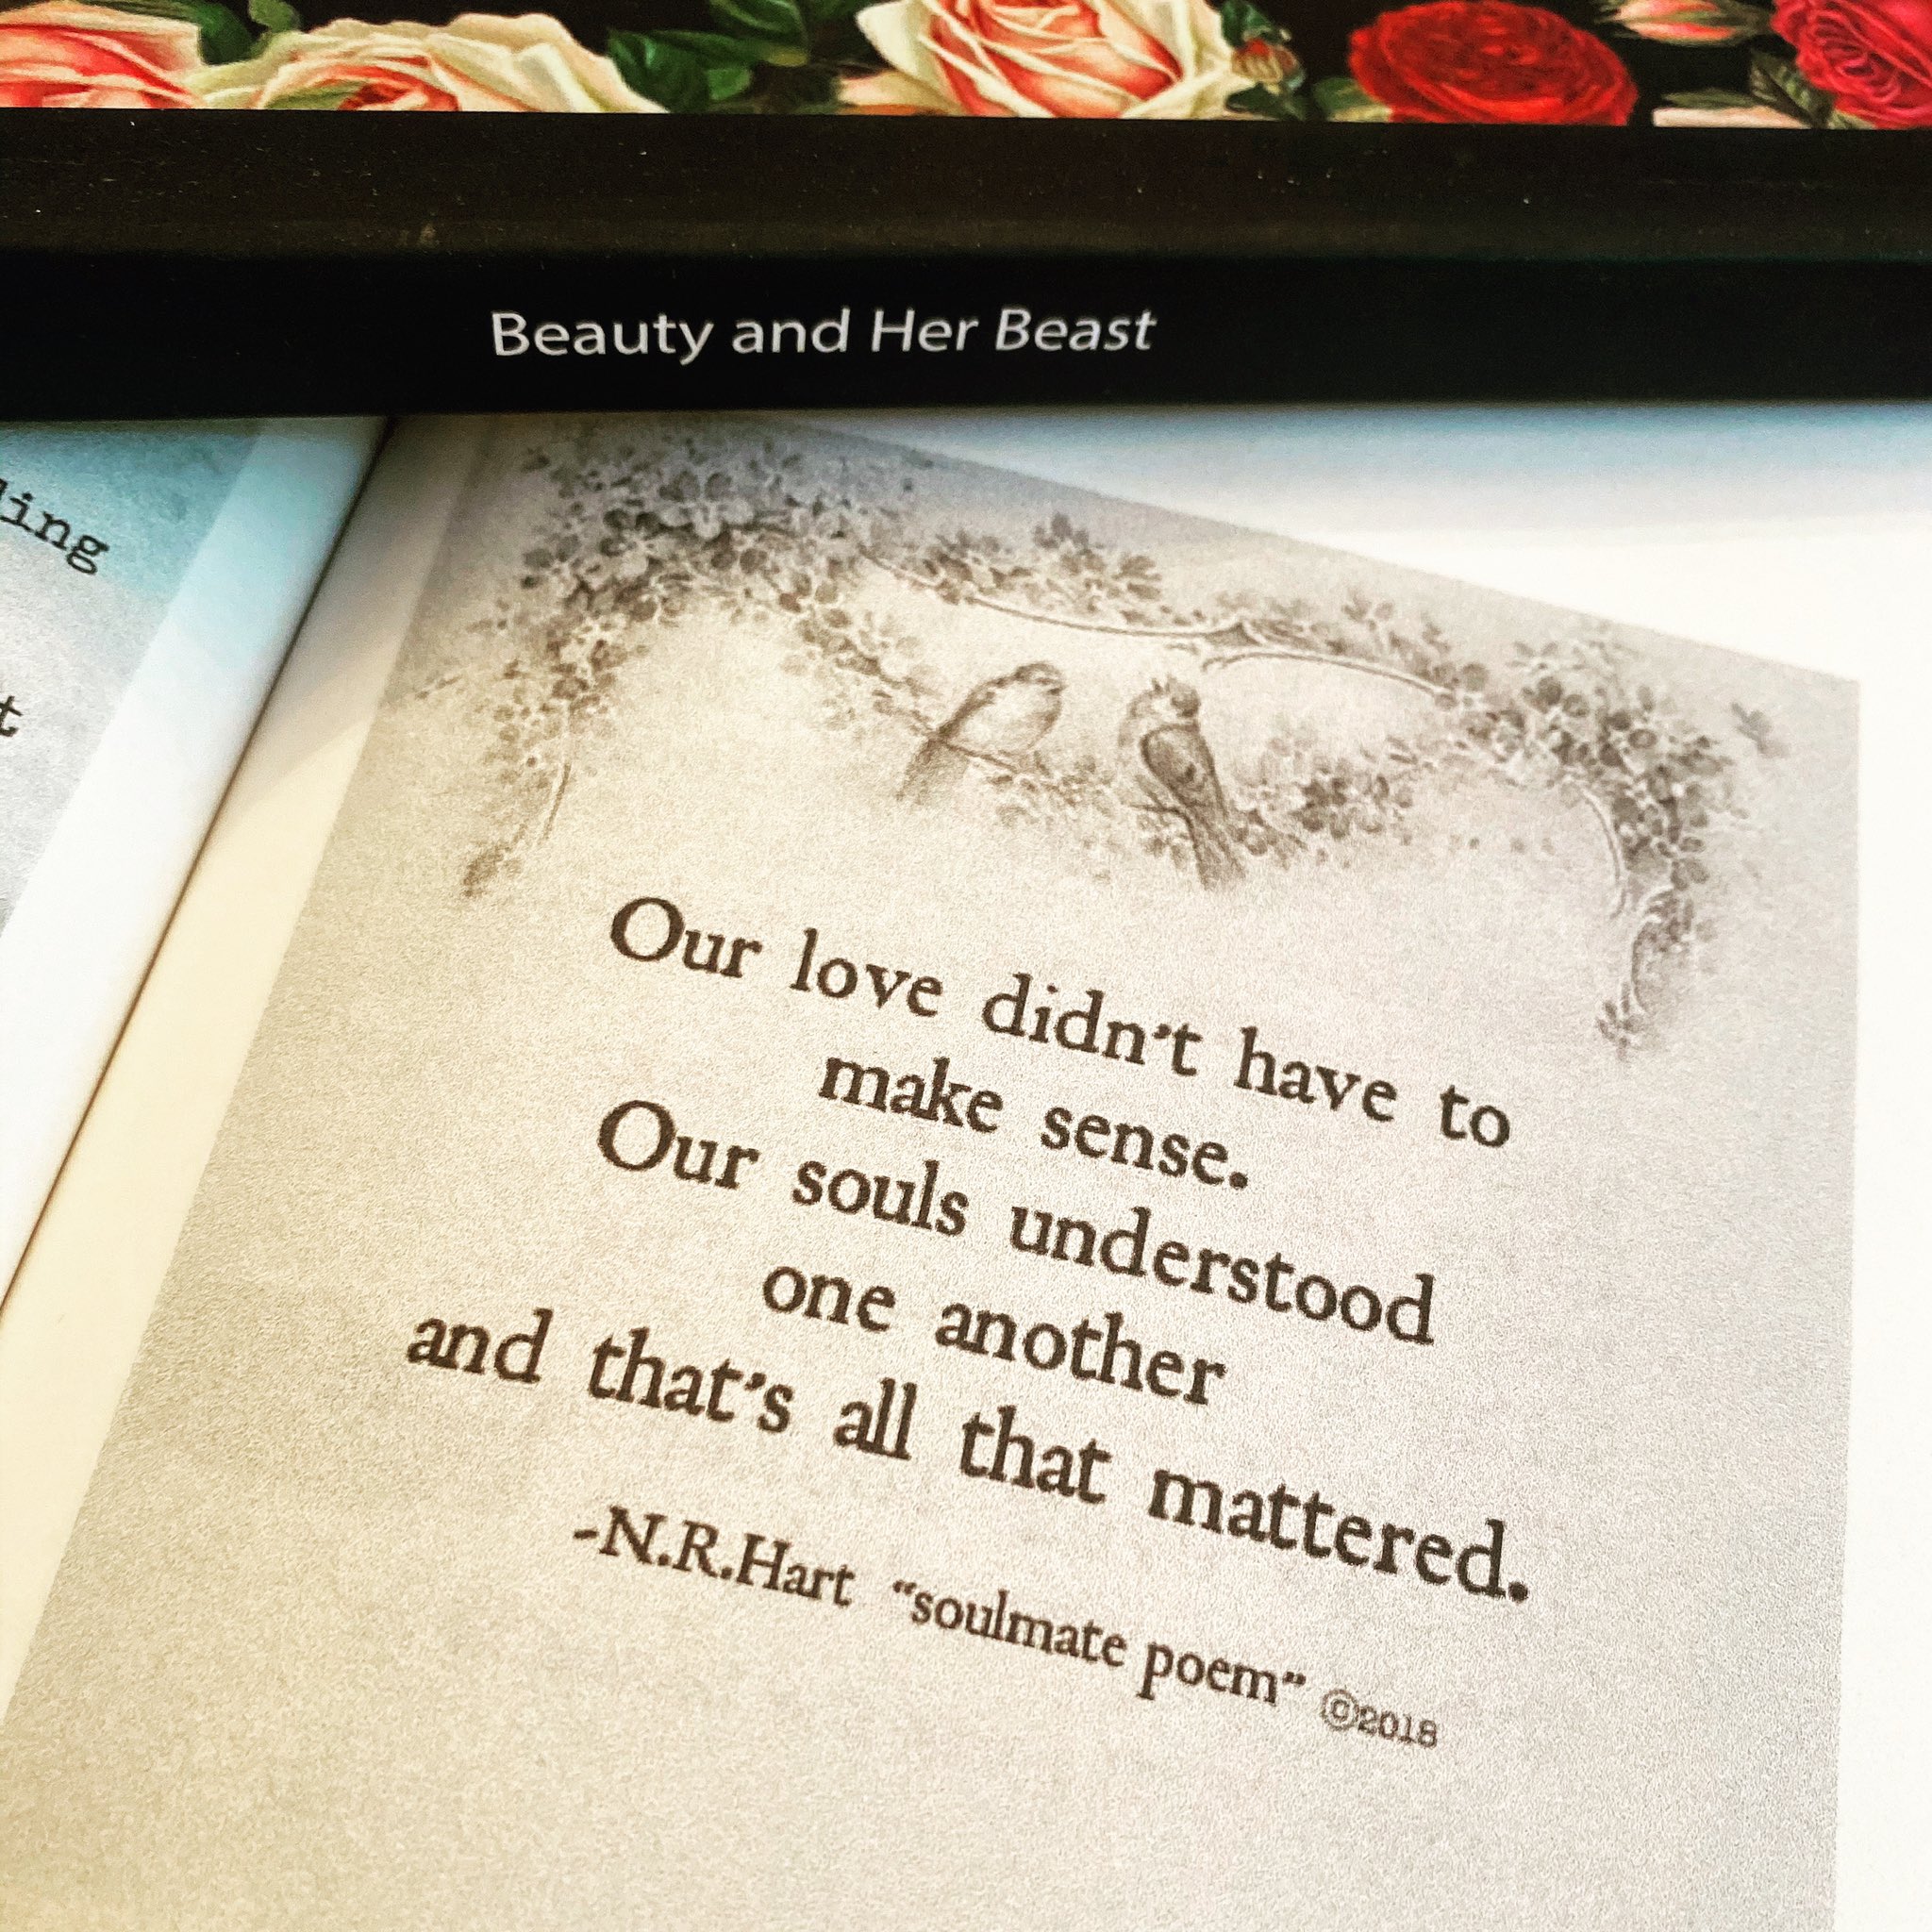 Beauty and Her Beast
ing
t
Our love didn't have to
make sense.
Our souls understood
one another
and that's all that mattered.
-N.R.Hart "soulmate poem" ©2018